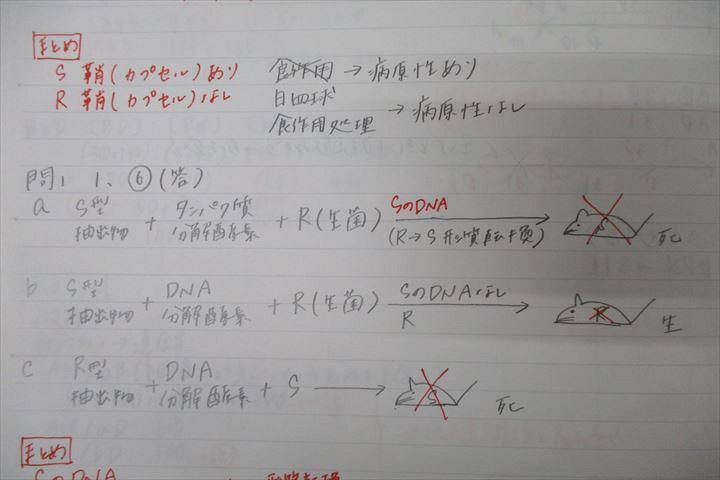 まとめ
S 鞘(カプセル)あり 食作用 → 病原性あり
R 鞘(カプセル)なし 白血球 食作用処理 → 病原性なし
問1 1、⑥(答)
a S型抽出物 + タンパク質分解酵素 + R(生菌) SのDNA (R→S形質転換) S 死
b S型抽出物 + DNA分解酵素 + R(生菌) SのDNAなし R R 生
c R型抽出物 + DNA分解酵素 + S → S 死
まとめ
SのDNA